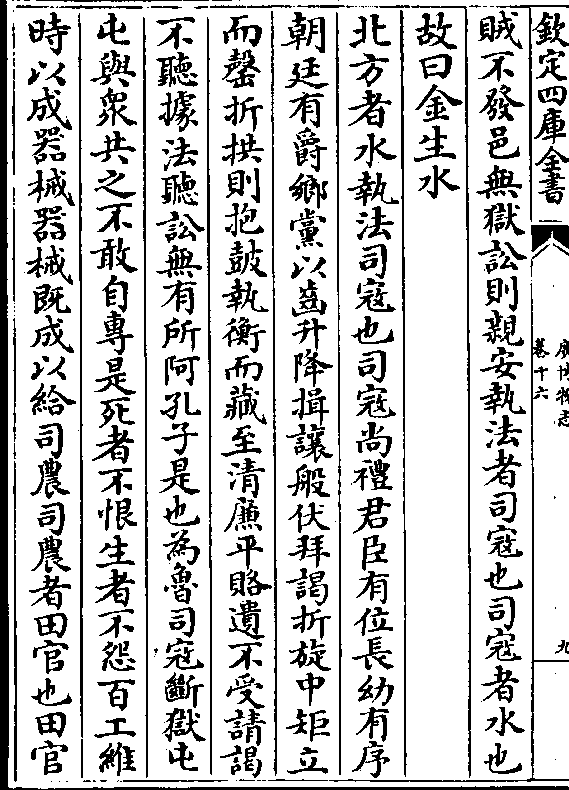 欽定四庫全書
廣博物志
卷十六
九
賊不發邑無獄訟則親安執法者司寇也司寇者水也
故曰金生水
北方者水執法司寇也司寇尚禮君臣有位長幼有序
朝廷有爵鄉黨以齒升降揖讓般伏拜謁折旋中矩立
而罄折拱則抱鼓執衡而藏至清廉平賂遺不受請謁
不聽據法聽訟無有所阿孔子是也為魯司寇斷獄屯
屯與衆共之不敢自專是死者不恨生者不怨百工維
時以成器械器械既成以給司農司農者田官也田官